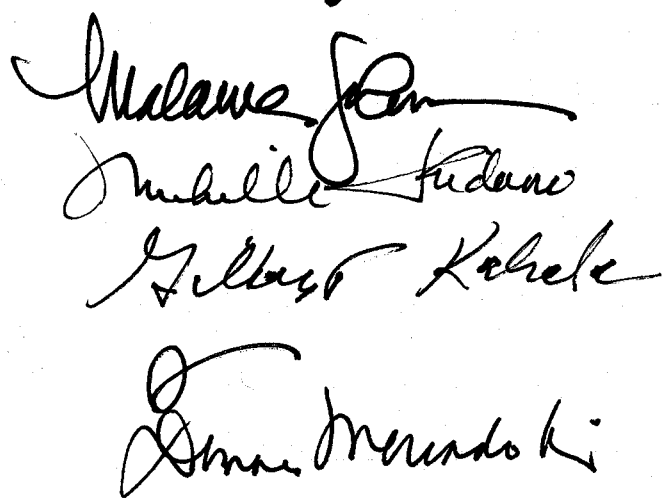 Malama
Michelle Kidani
Gilbert Kahele
Donna Mercado Kim